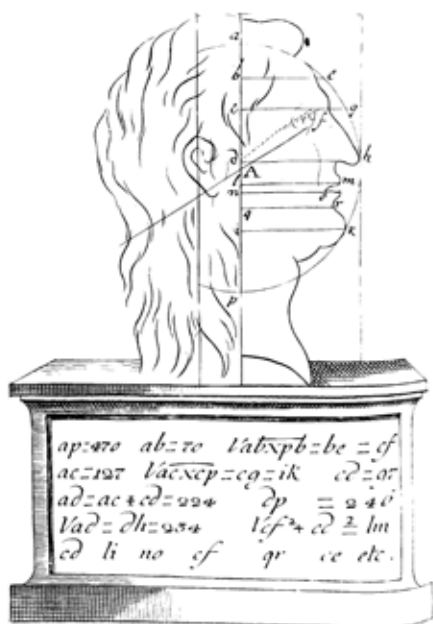 a
b e
c g
f
d h
A
m
n
q r
i k
p
ap=470 ab=70 Vabxpb=be=cf
ac=127 Vacxcp=cg=ik cd=97
ad=ac+cd=224 dp = 246
Vad=dh=234 Vcf²+cd²=lm
cd li no cf qr ce etc.